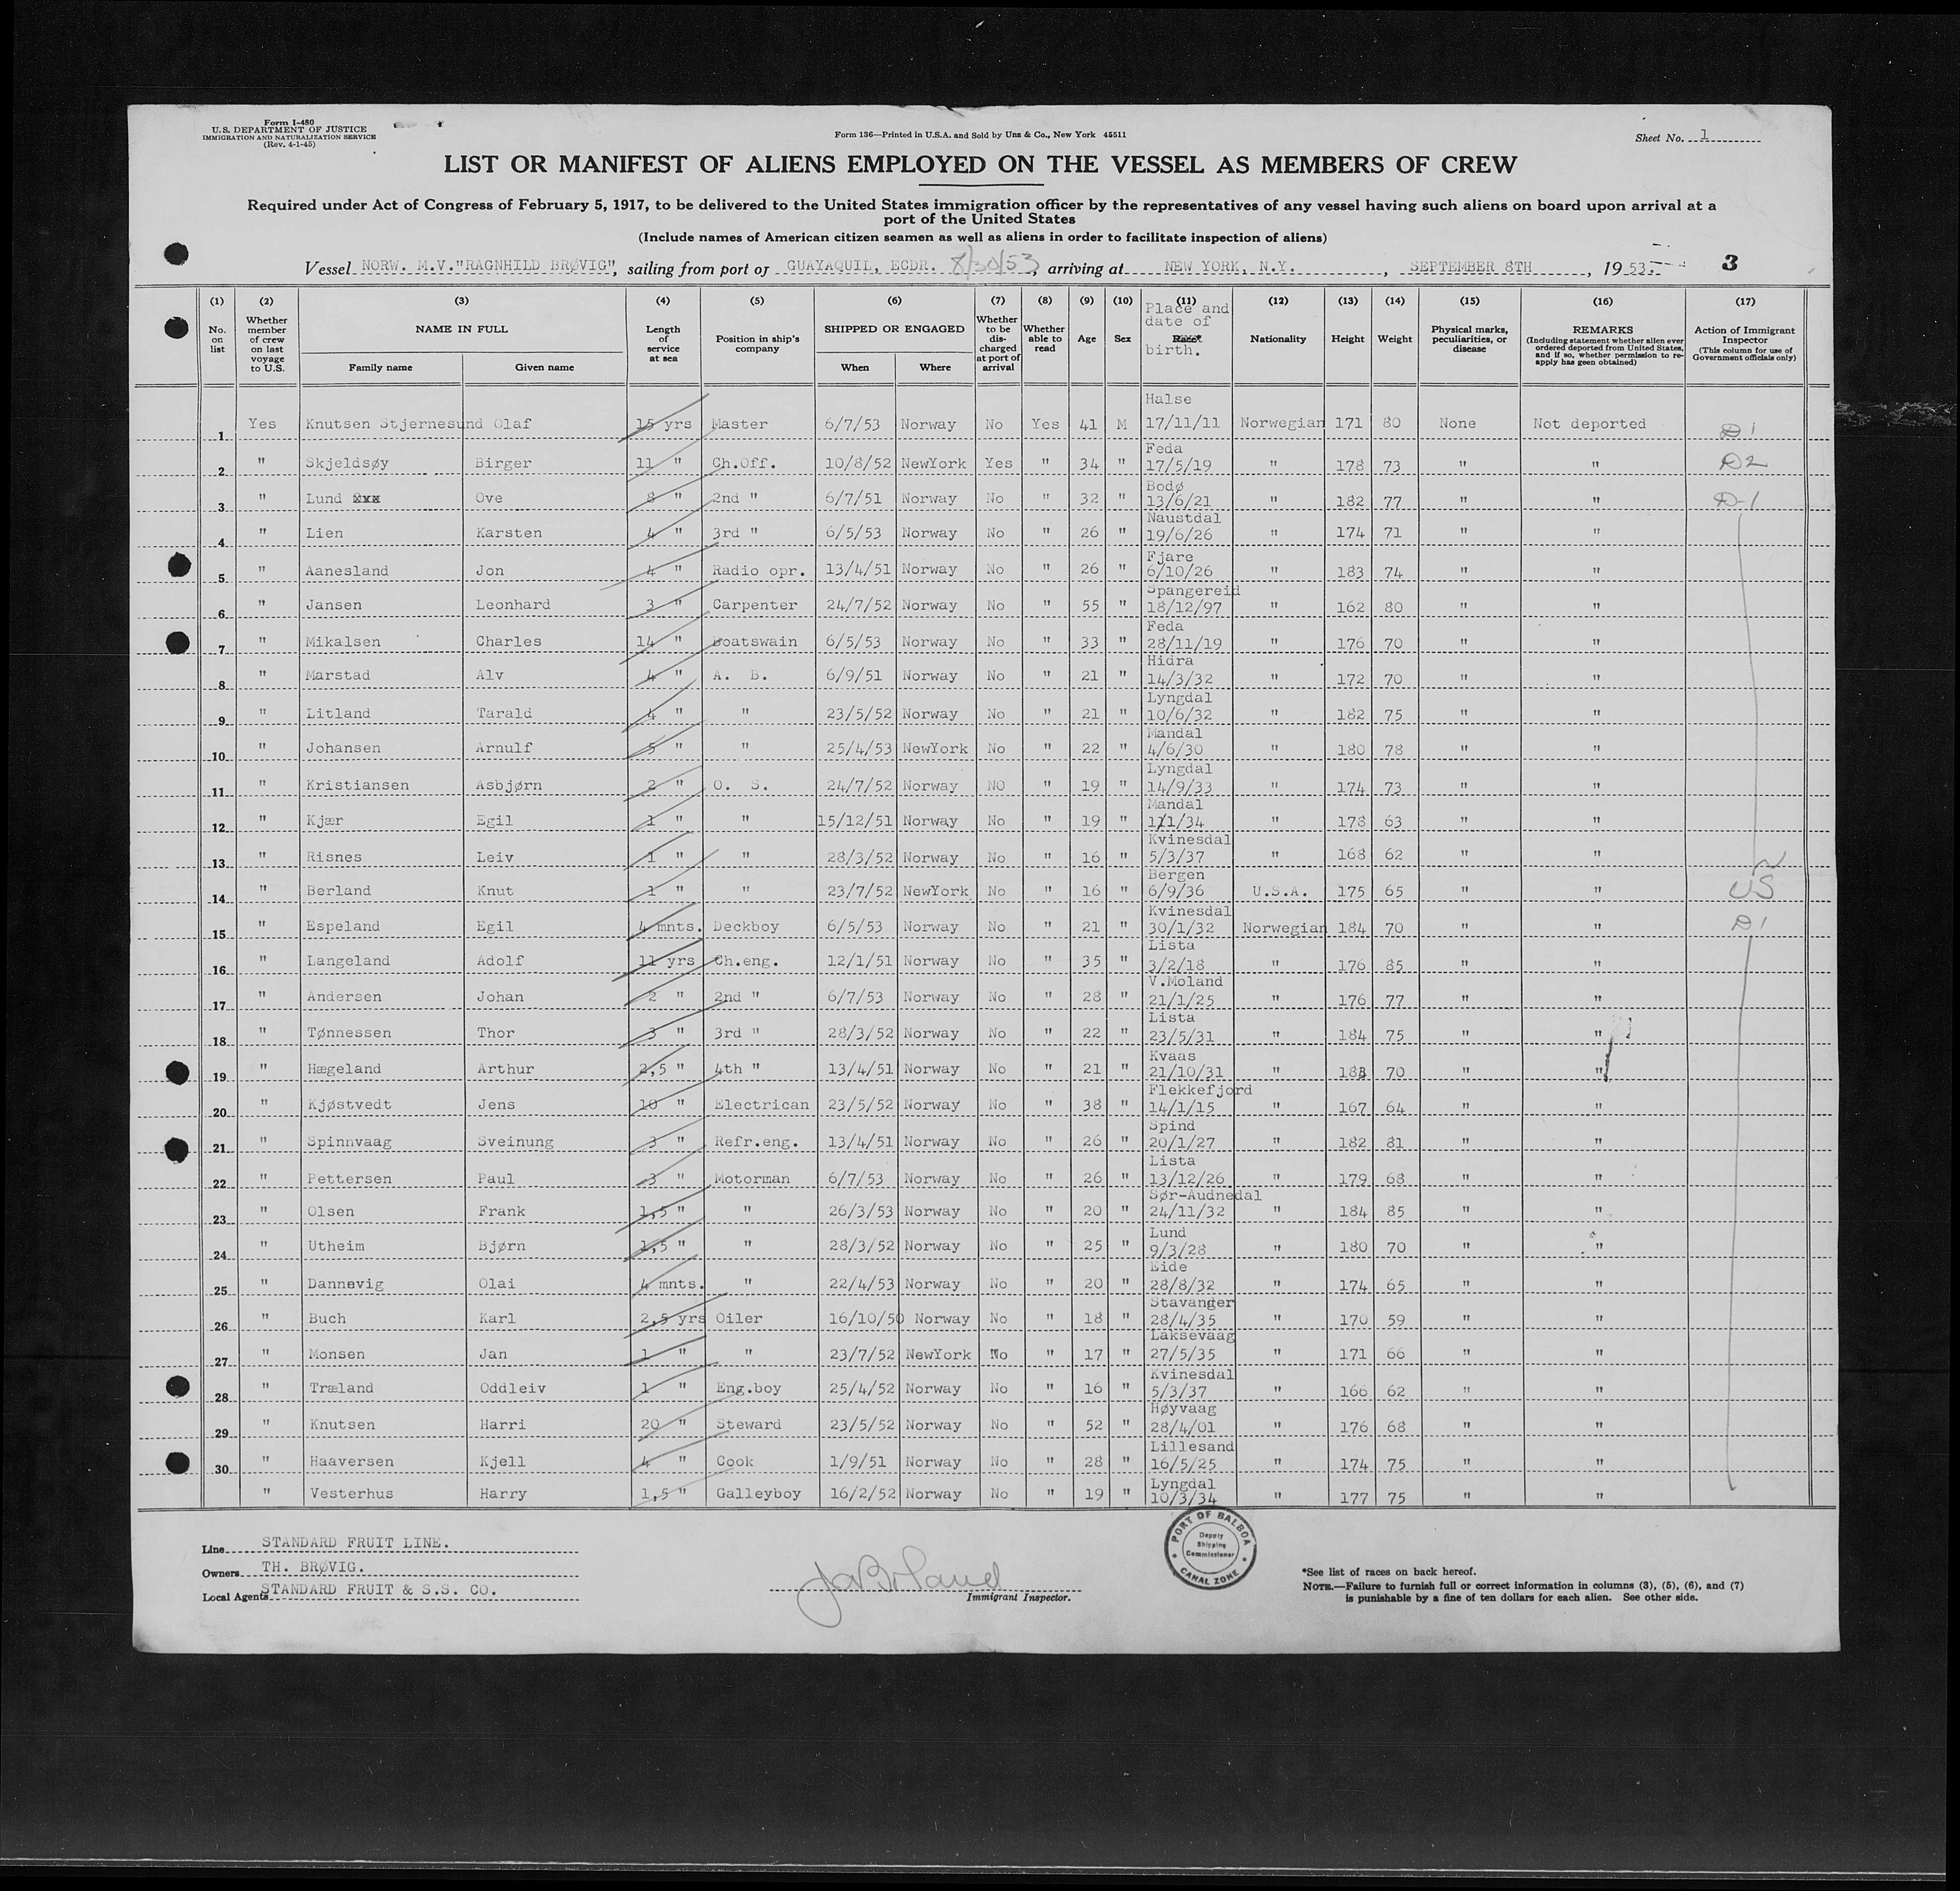 Form I-480
U.S. DEPARTMENT OF JUSTICE
IMMIGRATION AND NATURALIZATION SERVICE
(Rev. 4-1-45)
Form 136—Printed in U.S.A. and Sold by Unz & Co., New York 45511
Sheet No. 1
LIST OR MANIFEST OF ALIENS EMPLOYED ON THE VESSEL AS MEMBERS OF CREW
Required under Act of Congress of February 5, 1917, to be delivered to the United States immigration officer by the representatives of any vessel having such aliens on board upon arrival at a
port of the United States
(Include names of American citizen seamen as well as aliens in order to facilitate inspection of aliens)
Vessel NORW. M.V."RAGNHILD BRØVIG", sailing from port of GUAYAQUIL, ECDR. 8/30/53, arriving at NEW YORK, N.Y., SEPTEMBER 8TH, 1953. 3
(1) No. on list (2) Whether member of crew on last voyage to U.S. (3) NAME IN FULL Family name Given name (4) Length of service at sea (5) Position in ship's company (6) SHIPPED OR ENGAGED When Where (7) Whether to be discharged at port of arrival (8) Whether able to read (9) Age (10) Sex (11) Place and date of Race* birth. (12) Nationality (13) Height (14) Weight (15) Physical marks, peculiarities, or disease (16) REMARKS (Including statement whether alien ever ordered deported from United States, and if so, whether permission to re-apply has geen obtained) (17) Action of Immigrant Inspector (This column for use of Government officials only)
1 Yes Knutsen Stjernesund Olaf 15 yrs Master 6/7/53 Norway No Yes 41 M Halse 17/11/11 Norwegian 171 80 None Not deported D1
2 " Skjeldsøy Birger 11 " Ch.Off. 10/8/52 NewYork Yes " 34 " Feda 17/5/19 " 178 73 " " D2
3 " Lund xxx Ove 8 " 2nd " 6/7/51 Norway No " 32 " Bodø 13/6/21 " 182 77 " " D-1
4 " Lien Karsten 4 " 3rd " 6/5/53 Norway No " 26 " Naustdal 19/6/26 " 174 71 " "
5 " Aanesland Jon 4 " Radio opr. 13/4/51 Norway No " 26 " Fjare 6/10/26 " 183 74 " "
6 " Jansen Leonhard 3 " Carpenter 24/7/52 Norway No " 55 " Spangereid 18/12/97 " 162 80 " "
7 " Mikalsen Charles 14 " Boatswain 6/5/53 Norway No " 33 " Feda 28/11/19 " 176 70 " "
8 " Marstad Alv 4 " A. B. 6/9/51 Norway No " 21 " Hidra 14/3/32 " 172 70 " "
9 " Litland Tarald 4 " " 23/5/52 Norway No " 21 " Lyngdal 10/6/32 " 182 75 " "
10 " Johansen Arnulf 5 " " 25/4/53 NewYork No " 22 " Mandal 4/6/30 " 180 78 " "
11 " Kristiansen Asbjørn 2 " O. S. 24/7/52 Norway NO " 19 " Lyngdal 14/9/33 " 174 73 " "
12 " Kjær Egil 1 " " 15/12/51 Norway No " 19 " Mandal 1/1/34 " 178 63 " "
13 " Risnes Leiv 1 " " 28/3/52 Norway No " 16 " Kvinesdal 5/3/37 " 168 62 " "
14 " Berland Knut 1 " " 23/7/52 NewYork No " 16 " Bergen 6/9/36 U.S.A. 175 65 " " US
15 " Espeland Egil 4 mnts. Deckboy 6/5/53 Norway No " 21 " Kvinesdal 30/1/32 Norwegian 184 70 " " D1
16 " Langeland Adolf 11 yrs Ch.eng. 12/1/51 Norway No " 35 " Lista 3/2/18 " 176 85 " "
17 " Andersen Johan 2 " 2nd " 6/7/53 Norway No " 28 " V.Moland 21/1/25 " 176 77 " "
18 " Tønnessen Thor 3 " 3rd " 28/3/52 Norway No " 22 " Lista 23/5/31 " 184 75 " "
19 " Hægeland Arthur 2,5 " 4th " 13/4/51 Norway No " 21 " Kvaas 21/10/31 " 183 70 " "
20 " Kjøstvedt Jens 10 " Electrican 23/5/52 Norway No " 38 " Flekkefjord 14/1/15 " 167 64 " "
21 " Spinnvaag Sveinung 3 " Refr.eng. 13/4/51 Norway No " 26 " Spind 20/1/27 " 182 81 " "
22 " Pettersen Paul 3 " Motorman 6/7/53 Norway No " 26 " Lista 13/12/26 " 179 68 " "
23 " Olsen Frank 1,5 " " 26/3/53 Norway No " 20 " Sør-Audnedal 24/11/32 " 184 85 " "
24 " Utheim Bjørn 1,5 " " 28/3/52 Norway No " 25 " Lund 9/3/28 " 180 70 " "
25 " Dannevig Olai 4 mnts. " 22/4/53 Norway No " 20 " Eide 28/8/32 " 174 65 " "
26 " Buch Karl 2,5 yrs Oiler 16/10/50 Norway No " 18 " Stavanger 28/4/35 " 170 59 " "
27 " Monsen Jan 1 " " 23/7/52 NewYork No " 17 " Laksevaag 27/5/35 " 171 66 " "
28 " Træland Oddleiv 1 " Eng.boy 25/4/52 Norway No " 16 " Kvinesdal 5/3/37 " 166 62 " "
29 " Knutsen Harri 20 " Steward 23/5/52 Norway No " 52 " Høyvaag 28/4/01 " 176 68 " "
30 " Haaversen Kjell 4 " Cook 1/9/51 Norway No " 28 " Lillesand 16/5/25 " 174 75 " "
" Vesterhus Harry 1,5 " Galleyboy 16/2/52 Norway No " 19 " Lyngdal 10/3/34 " 177 75 " "
Line STANDARD FRUIT LINE.
Owners TH. BRØVIG.
Local Agents STANDARD FRUIT & S.S. CO.
Immigrant Inspector.
PORT OF BALBOA
Deputy
Shipping
Commissioner
CANAL ZONE
*See list of races on back hereof.
NOTE.—Failure to furnish full or correct information in columns (3), (5), (6), and (7)
is punishable by a fine of ten dollars for each alien. See other side.